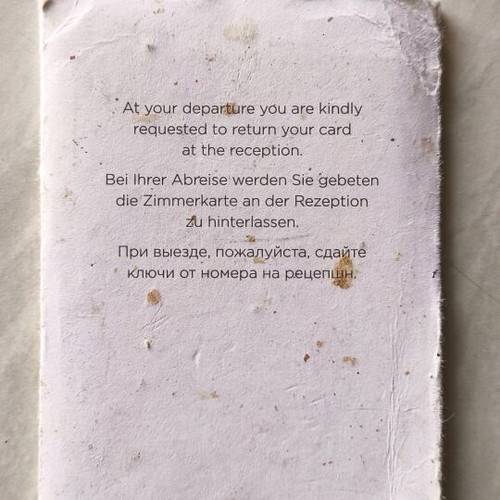 At your departure you are kindly
requested to return your card
at the reception.
Bei Ihrer Abreise werden Sie gebeten
die Zimmerkarte an der Rezeption
zu hinterlassen.
При выезде, пожалуйста, сдайте
ключи от номера на рецепшн.